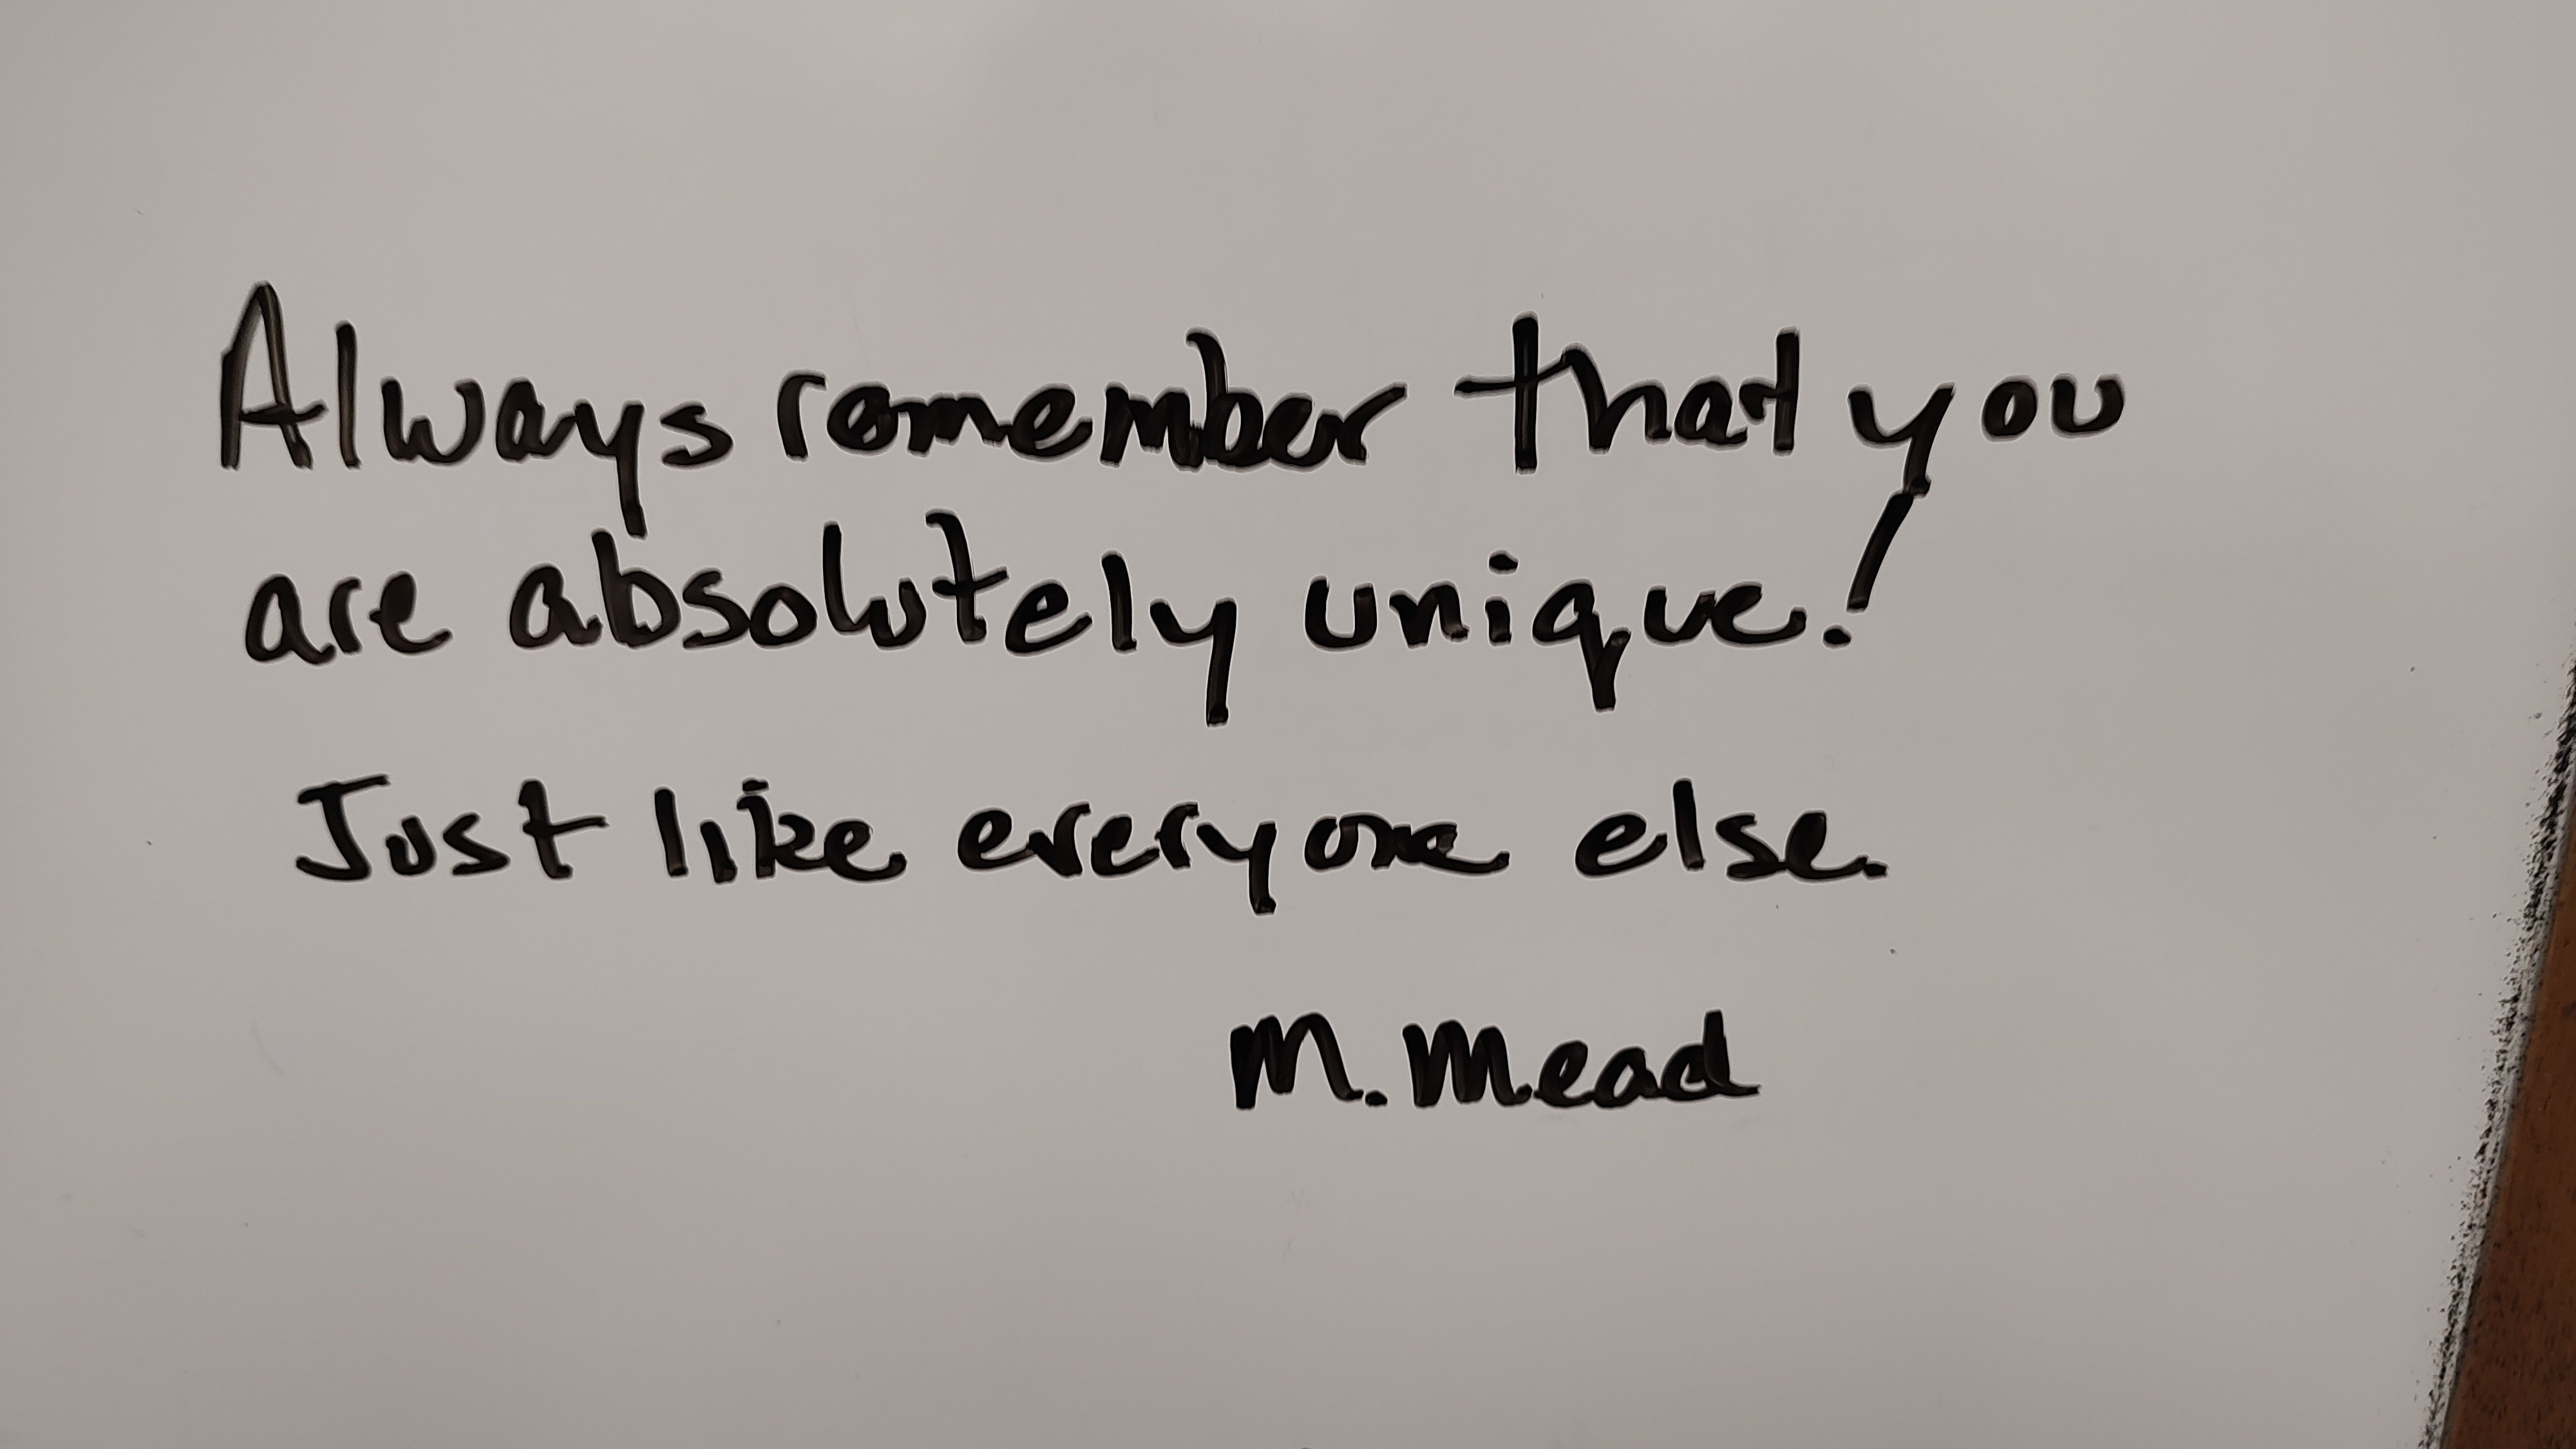 Always remember that you
are absolutely unique!
Just like everyone else.
M. Mead